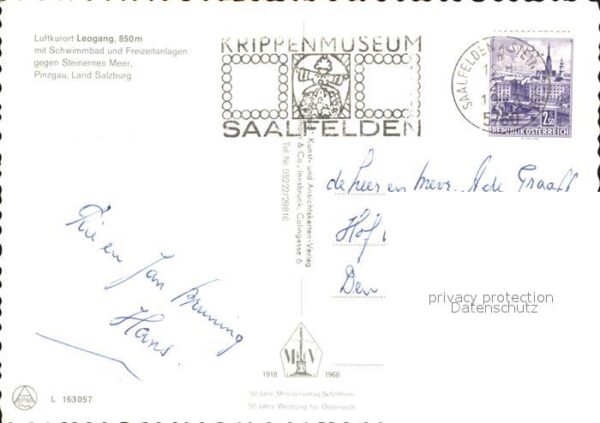 Luftkurort Leogang, 850m
mit Schwimmbad und Freizeitanlagen
gegen Steinernes Meer,
Pinzgau, Land Salzburg
KRIPPENMUSEUM
SAALFELDEN
SAALFELDEN A. STEIN
2.50
REPUBLIK ÖSTERREICH
Kunst- und Ansichtskarten-Verlag
& Co., Innsbruck, Colingasse 6
Tel. Nr. 05222/29816
de heer en mevr. de Graaff
Hof
Den
privacy protection
Datenschutz
en Jan Bruning
Hans.
M V
1918 1968
50 Jahre Mongolverlag Schöllhorn
50 Jahre Werbung für Österreich
L 163057